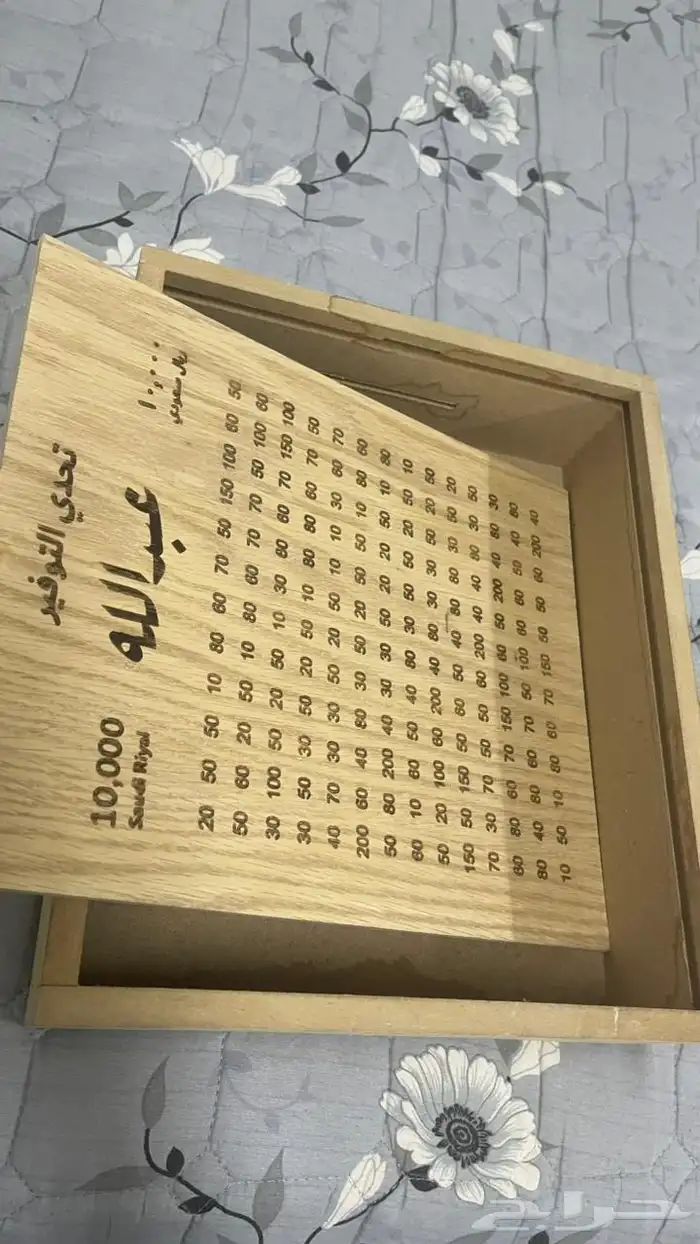 تحدي التوفير
10,000 عبدالله ١٠,٠٠٠
Saudi Riyal ريال سعودي
20 50 50 10 80 60 70 50 150 100 60 50
50 60 20 50 10 80 60 70 70 50 100 60
30 100 50 20 50 10 30 80 60 70 150 100
30 50 30 50 20 50 10 80 80 60 70 50
40 70 30 30 50 20 50 10 10 30 60 70
200 60 40 80 30 50 20 50 50 10 80 60
50 80 200 40 30 30 50 20 20 50 10 80
60 10 60 50 40 80 30 50 50 20 50 10
50 20 100 60 200 40 80 30 30 50 20 50
150 50 150 50 60 50 40 80 80 30 50 20
70 30 70 50 50 60 200 40 40 80 30 50
60 80 60 70 150 100 60 50 200 40 80 30
80 40 80 60 70 50 100 60 60 50 40 80
10 50 10 80 60 70 150 50 50 60 200 40
حراج